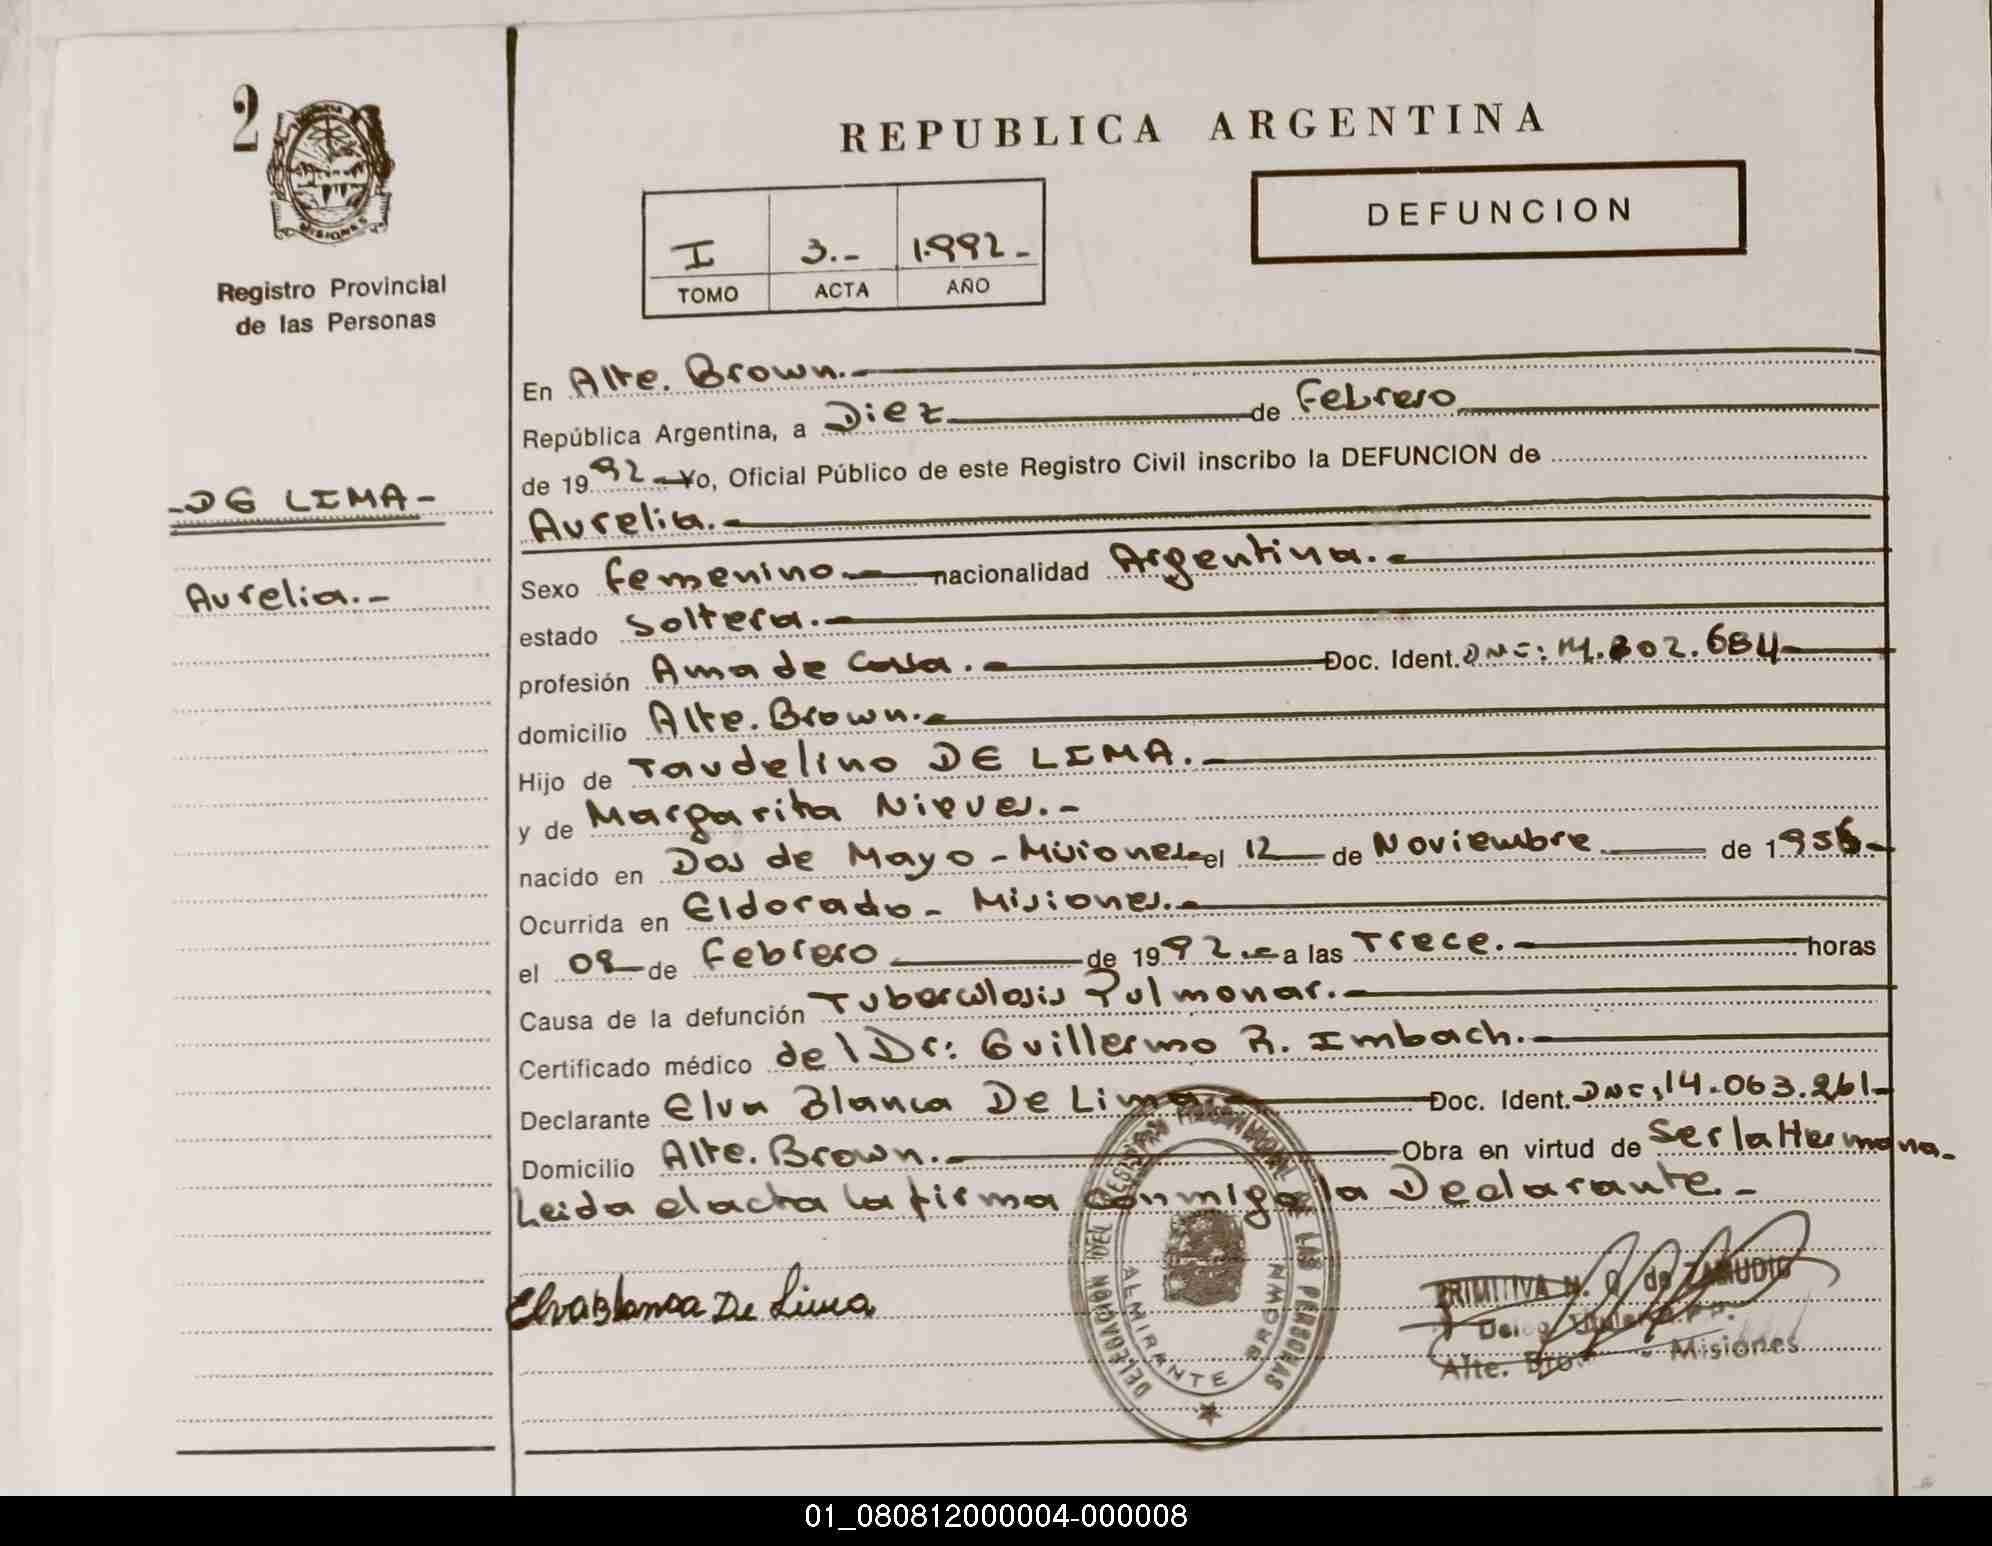 2
MISIONES
Registro Provincial
de las Personas
-DE LIMA-
Aurelia.-
REPUBLICA ARGENTINA
DEFUNCION
I 3.- 1.992-
TOMO ACTA AÑO
En Alte. Brown.-
República Argentina, a Diez de Febrero
de 1992 - Yo, Oficial Público de este Registro Civil inscribo la DEFUNCION de
Aurelia.-
Sexo Femenino.- nacionalidad Argentina.-
estado Soltera.-
profesión Ama de Casa.- Doc. Ident. DNI: 14.802.684-
domicilio Alte. Brown.-
Hijo de Taudelino DE LIMA.-
y de Margarita Nieves.-
nacido en Dos de Mayo - Misiones- el 12 de Noviembre de 1956-
Ocurrida en Eldorado - Misiones.-
el 08 de Febrero de 1992.- a las Trece.- horas
Causa de la defunción Tuberculosis Pulmonar.-
Certificado médico del Dr: Guillermo R. Imbach.-
Declarante Elva Blanca De Lima.- Doc. Ident. DNI: 14.063.261-
Domicilio Alte. Brown.- Obra en virtud de Ser la Hermana.-
Leida el acta la firma conmigo la Declarante.-
Elva Blanca De Lima
DELEGACION DEL REGISTRO PROVINCIAL DE LAS PERSONAS
ALMIRANTE BROWN
PRIMITIVA M. de ZAMUDIO
Deleg. Titular R.P.P.
Alte. Brown - Misiones
01_080812000004-000008